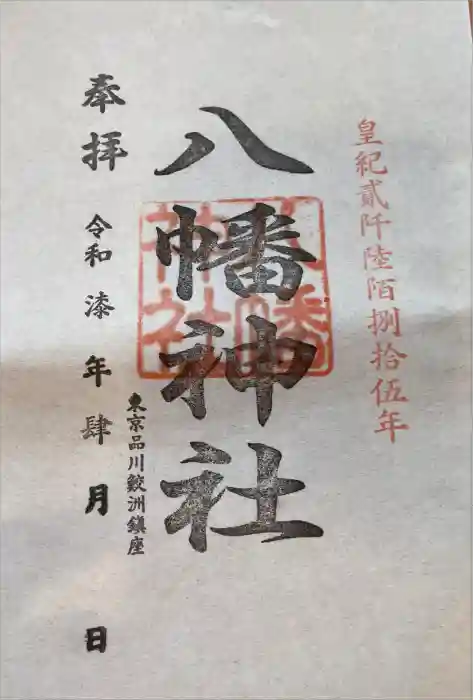 皇紀貳阡陸陌捌拾伍年
八幡神社
八幡
神社
東京品川鮫洲鎮座
奉拝 令和漆年肆月 日